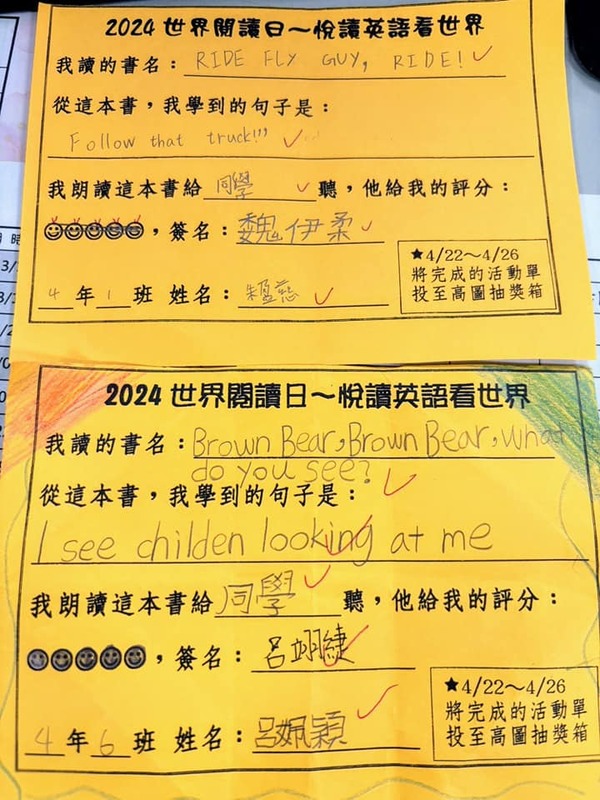 2024 世界閱讀日～悅讀英語看世界
我讀的書名：RIDE FLY GUY, RIDE!
從這本書，我學到的句子是：
Follow that truck!"
我朗讀這本書給 同學 聽，他給我的評分：
，簽名：魏伊柔
★4/22～4/26
將完成的活動單
投至高圖抽獎箱
4 年 1 班 姓名：朱盈慈
2024 世界閱讀日～悅讀英語看世界
我讀的書名：Brown Bear, Brown Bear, What
do you see?
從這本書，我學到的句子是：
I see childen looking at me
我朗讀這本書給 同學 聽，他給我的評分：
，簽名：呂翊緁
★4/22～4/26
將完成的活動單
投至高圖抽獎箱
4 年 6 班 姓名：呂姵穎